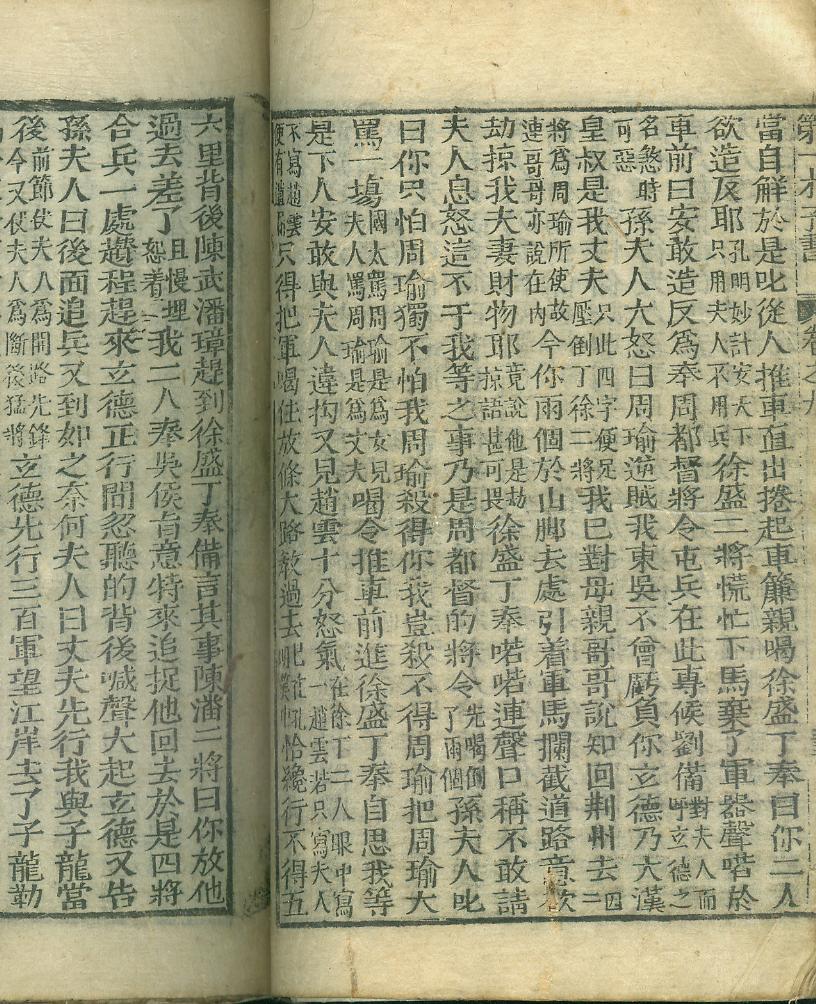 第一才子書 卷之九
當自解於是叱從人推車直出捲起車簾親喝徐盛丁奉曰你二人
欲造反耶孔明妙計安天下只用夫人不用兵徐盛二將慌忙下馬棄了軍器聲喏於
車前曰安敢造反爲奉周都督將令屯兵在此專候劉備對夫人而呼立德之
名煞時可惡孫夫人大怒曰周瑜逆賊我東吳不曾虧負你立德乃大漢
皇叔是我丈夫只此四字便足壓倒丁徐二將我已對母親哥哥說知回荆州去因二
將爲周瑜所使故連哥哥亦說在內今你兩個於山脚去處引着軍馬攔截道路意欲
劫掠我夫妻財物耶竟說他是劫掠語甚可畏徐盛丁奉喏喏連聲口稱不敢請
夫人息怒這不干我等之事乃是周都督的將令先喝倒了兩個孫夫人叱
曰你只怕周瑜獨不怕我周瑜殺得你我豈殺不得周瑜把周瑜大
罵一塲國太罵周瑜是爲女兒夫人罵周瑜是爲丈夫喝令推車前進徐盛丁奉自思我等
是下人安敢與夫人違拘又見趙雲十分怒氣在徐丁二人眼中寫一趙雲若只寫夫人
不寫趙雲便有只得把軍喝住放條大路教過去恰纔行不得五
六里背後陳武潘璋趕到徐盛丁奉備言其事陳潘二將曰你放他
過去差了且慢埋怨着我二人奉吳侯旨意特來追捉他回去於是四將
合兵一處趲程趕來立德正行間忽聽的背後喊聲大起立德又告
孫夫人曰後面追兵又到如之奈何夫人曰丈夫先行我與子龍當
後前節仗夫人爲開路先鋒今又仗夫人爲斷後猛將立德先行三百軍望江岸去了子龍勒